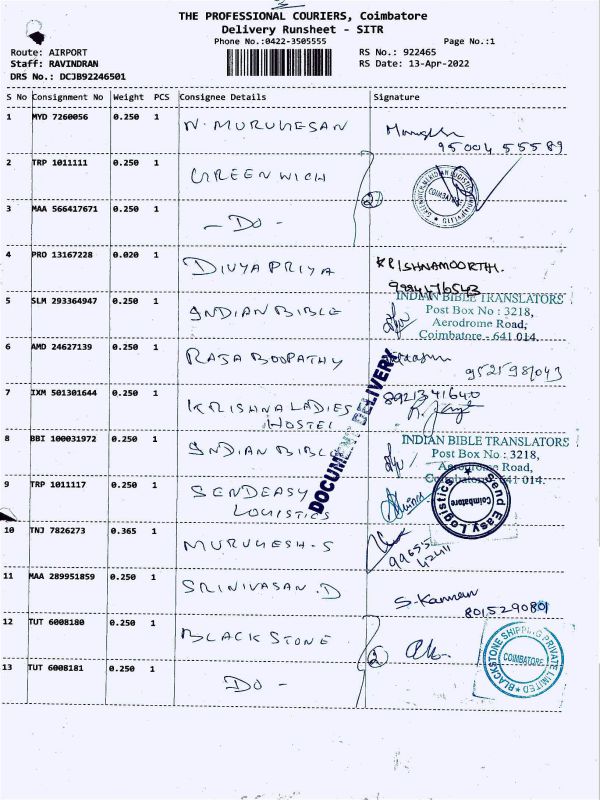 THE PROFESSIONAL COURIERS, Coimbatore
Delivery Runsheet - SITR
Phone No.:0422-3505555
Page No.:1
Route: AIRPORT
RS No.: 922465
Staff: RAVINDRAN
RS Date: 13-Apr-2022
DRS No.: DCJB92246501
S No Consignment No Weight PCS Consignee Details Signature
1 MYD 7260056 0.250 1 N. MURUGESAN
95004 55589
2 TRP 1011111 0.250 1 GREENWICH
2
COIMBATORE
3 MAA 566417671 0.250 1 - DO -
4 PRO 13167228 0.020 1 DIVYAPRIYA KRISHNAMOORTHI.
9994176543
5 SLM 293364947 0.250 1 INDIAN BIBLE
INDIAN BIBLE TRANSLATORS
Post Box No : 3218,
Aerodrome Road,
Coimbatore - 641 014.
6 AMD 24627139 0.250 1 RAJA BOOPATHY
DOCUMENT DELIVERY
7 IXM 501301644 0.250 1 KRISHNA LADIES
HOSTEL
8921341640
8 BBI 100031972 0.250 1 INDIAN BIBLE
INDIAN BIBLE TRANSLATORS
Post Box No : 3218,
Aerodrome Road,
Coimbatore - 641 014.
9 TRP 1011117 0.250 1 SENDEASY
LOGISTICS
Send Easy Logistics
Coimbatore
10 TNJ 7826273 0.365 1 MURUGESH-S
99655
42411
11 MAA 289951859 0.250 1 SRINIVASAN.D
S. Kannan
8015290801
12 TUT 6008180 0.250 1 BLACKSTONE
2
BLACKSTONE SHIPPING PRIVATE LIMITED
COIMBATORE
13 TUT 6008181 0.250 1 DO -